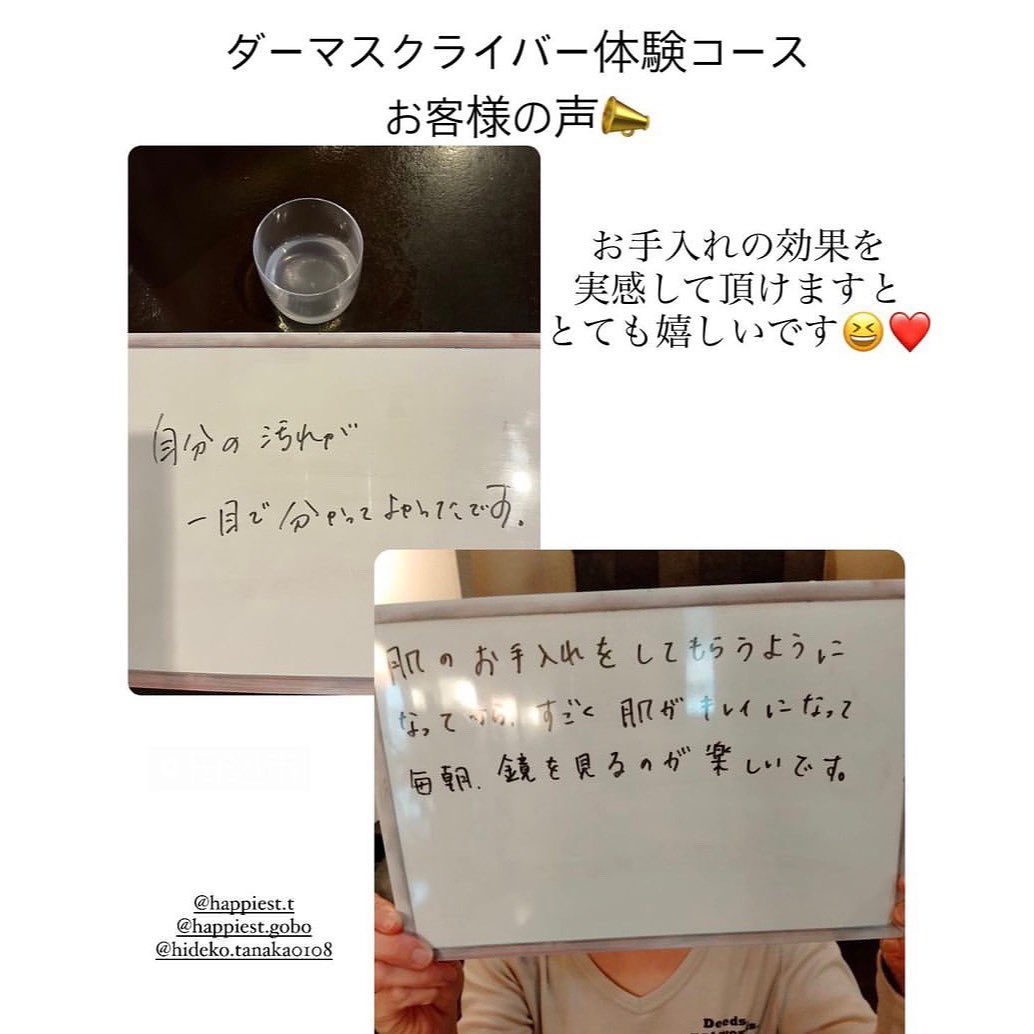 ダーマスクライバー体験コース
お客様の声
お手入れの効果を
実感して頂けますと
とても嬉しいです
自分の汚れが
一目で分かってよかったです。
肌のお手入れをしてもらうように
なってから、すごく肌がキレイになって
毎朝、鏡を見るのが楽しいです。
@happiest.t
@happiest.gobo
@hideko.tanaka0108
Deeds